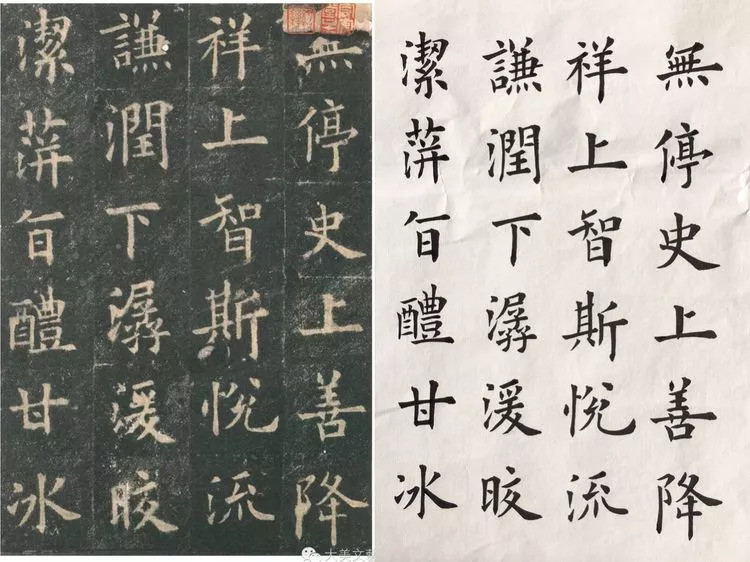 無停史上善降
祥上智斯悅流
謙潤下潺湲晈
潔蓱旨醴甘冰
無停史上善降
祥上智斯悅流
謙潤下潺湲晈
潔蓱旨醴甘冰
大美文